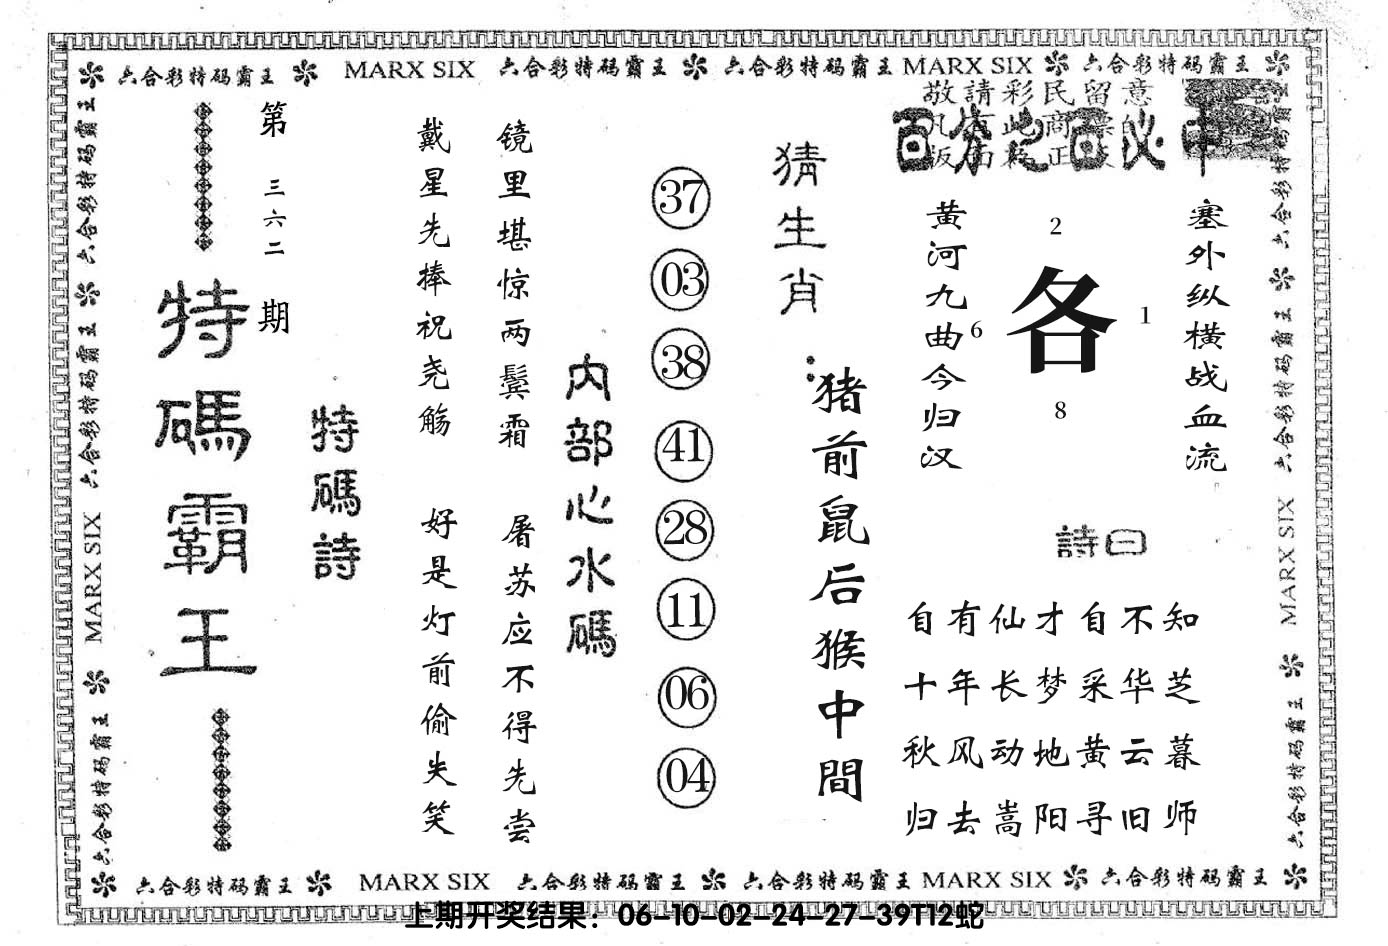 六合彩特码霸王 MARX SIX 六合彩特码霸王 六合彩特码霸王 MARX SIX 六合彩特码霸王
敬請彩民留意
百分之百必中
塞外纵横战血流
黄河九曲今归汉
2
6 各 1
8
詩曰
自有仙才自不知
十年长梦采华芝
秋风动地黄云暮
归去嵩阳寻旧师
猜生肖:
猪前鼠后猴中間
37
03
38
41
28
11
06
04
内部心水碼
镜里堪惊两鬓霜
屠苏应不得先尝
戴星先捧祝尧觞
好是灯前偷失笑
特碼詩
第三六二期
特碼霸王
六合彩特码霸王 六合彩特码霸王 MARX SIX 六合彩特码霸王
六合彩特码霸王 六合彩特码霸王 MARX SIX 六合彩特码霸王
六合彩特码霸王 MARX SIX 六合彩特码霸王 六合彩特码霸王 MARX SIX 六合彩特码霸王
上期开奖结果：06-10-02-24-27-39T12蛇